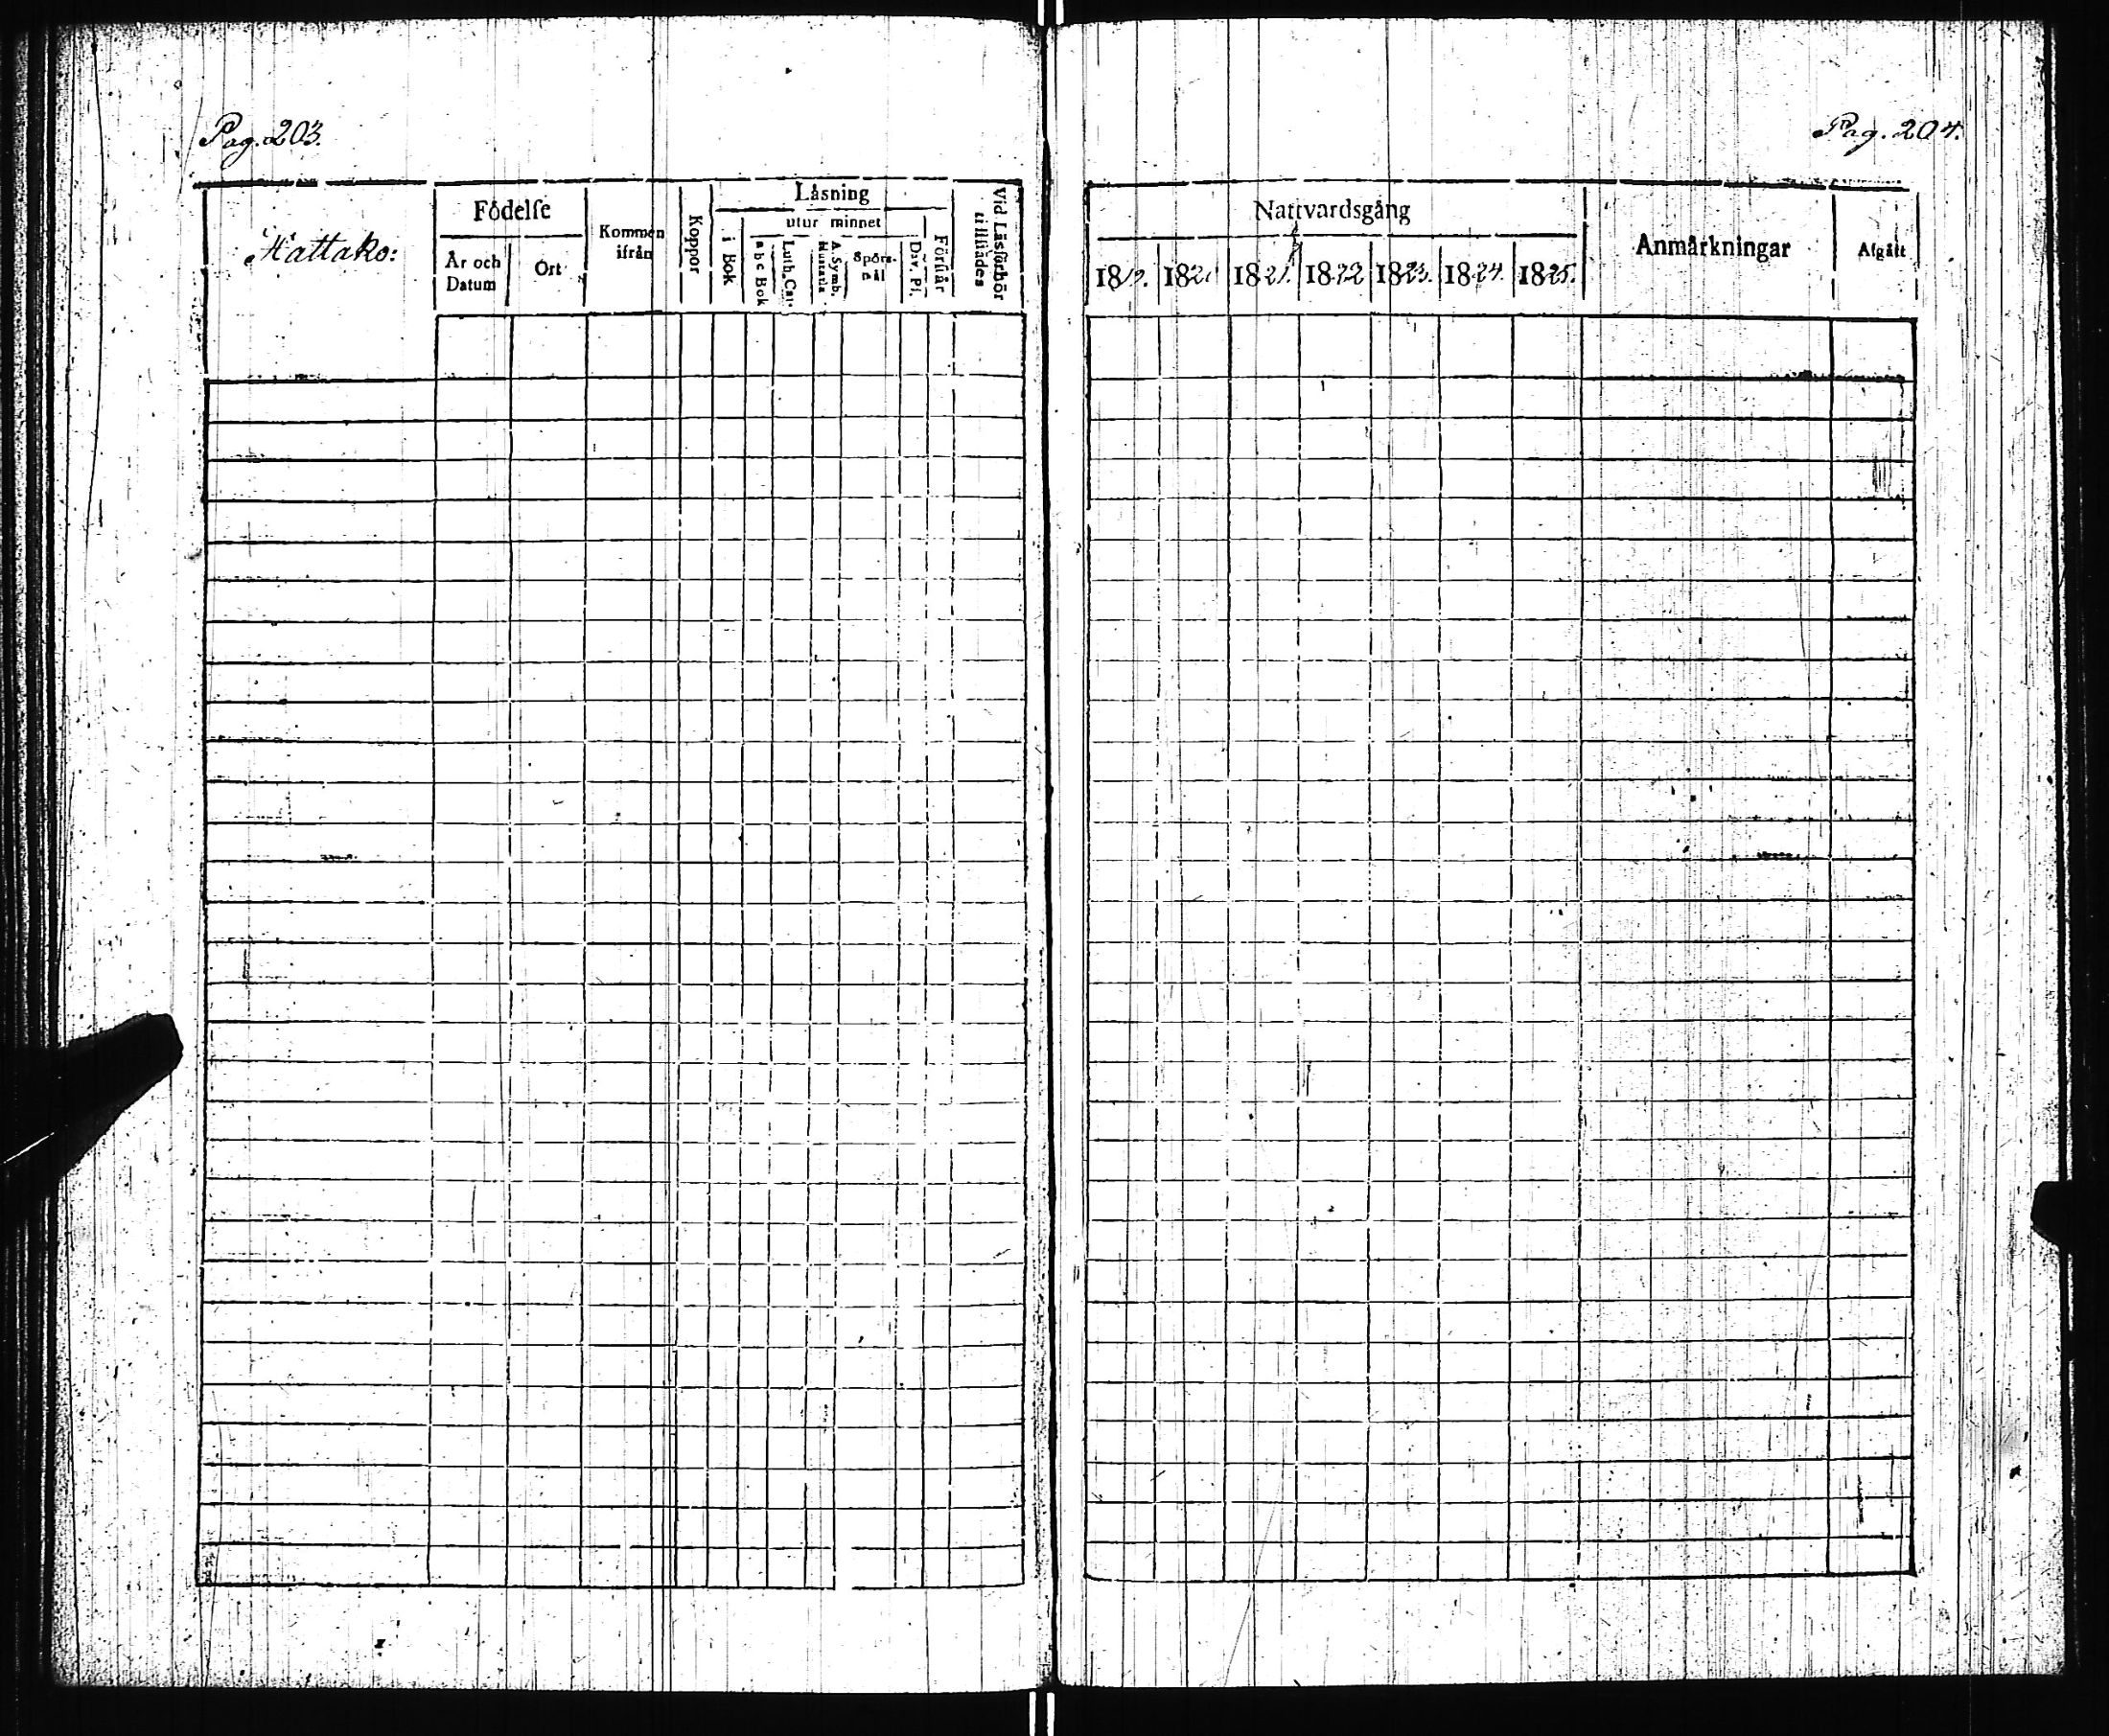 Pag. 203.
Hattako:
Födelse
År och Datum
Ort
Kommen ifrån
Koppor
Läsning
i Bok
utur minnet
a b c Bok
Luth. Cat.
A. Symb. Hustafla
Spörsmål
Dav. Ps.
Förstår
Vid Läsförhör tillstädes
Pag. 204.
Nattvardsgång
1819. 1820 1821. 1822 1823. 1824. 1825.
Anmärkningar
Afgått